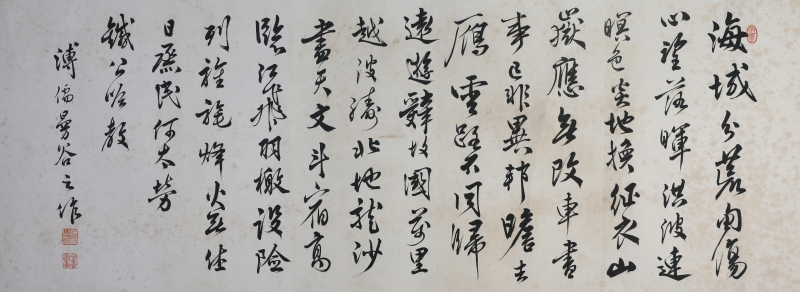 海城分荒甸傷
心望落暉洪波連
暝色炎地換征衣山
嶽應無改車書
事已非異邦瞻去
鴈雲路不同歸
遠遊辭故國萬里
越波濤北地龍沙
盡天文斗宿高
臨江飛羽檄設險
列旌旄烽火無休
日蒸民何太勞
鐵公吟教
溥儒曼谷之作